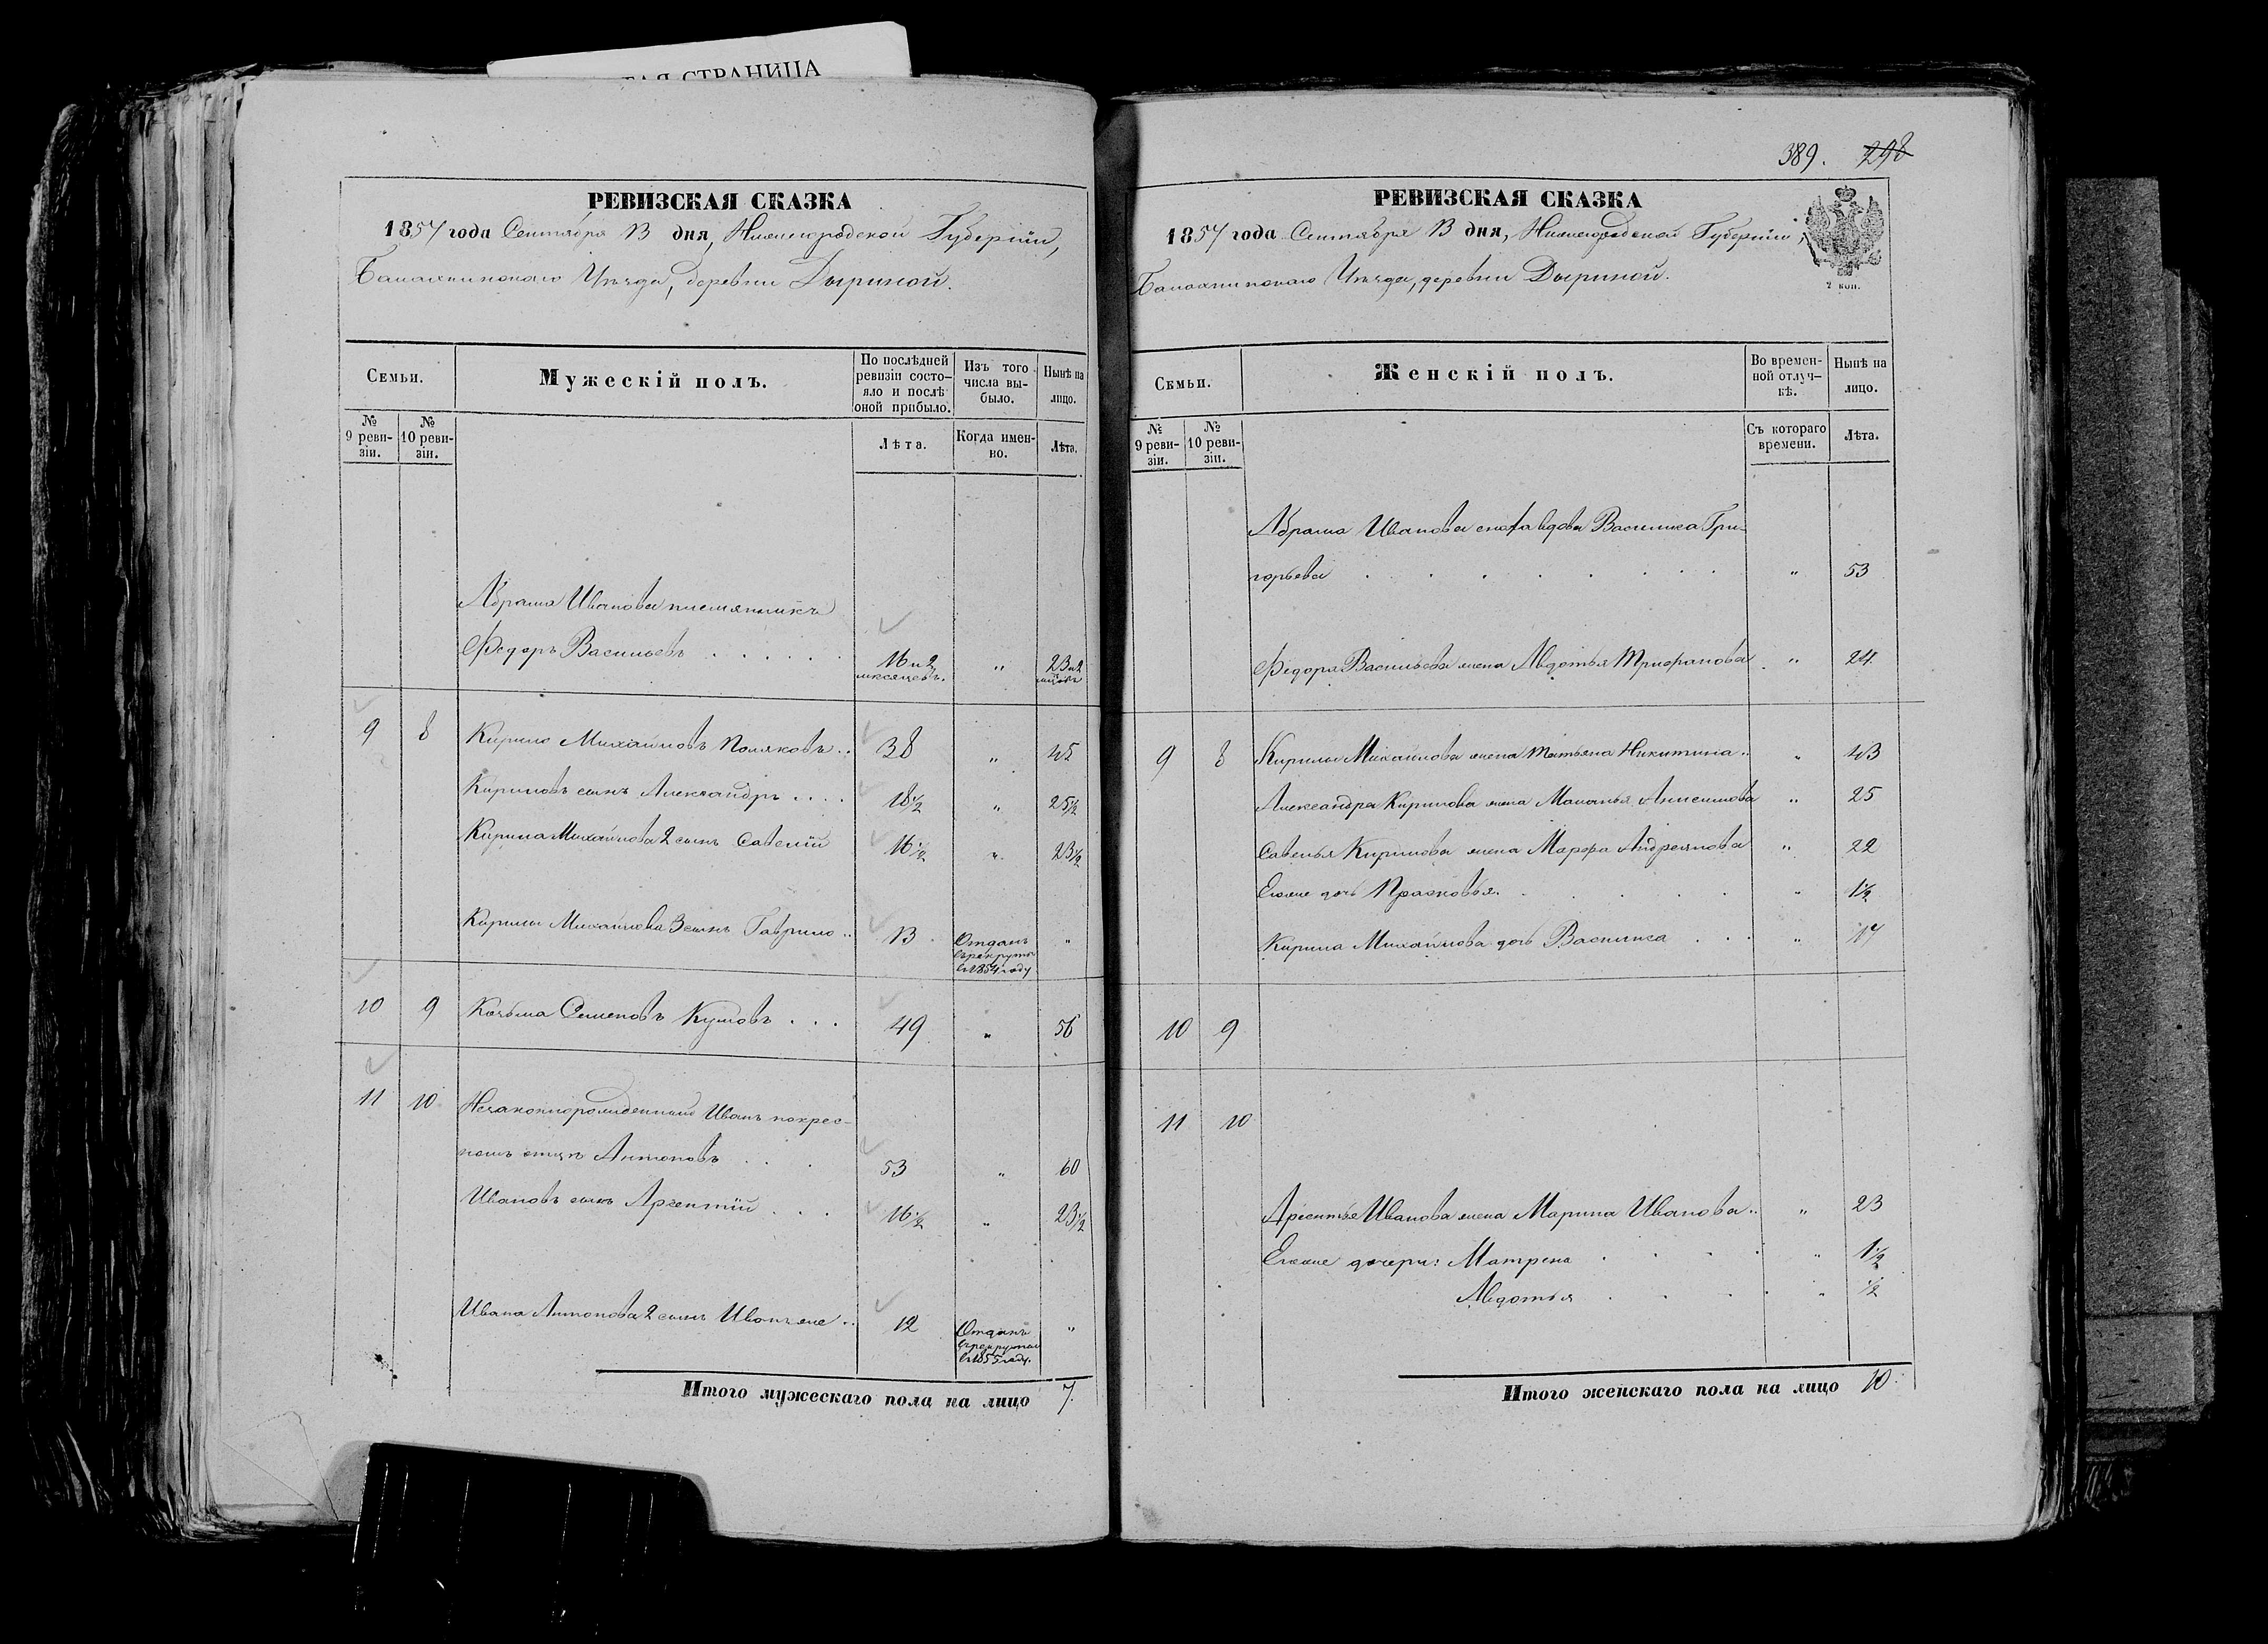 АЯ СТРАНИЦА
РЕВИЗСКАЯ СКАЗКА
1857 года Сентября 13 дня, Нижегородской Губернiи,
Балахнинскаго Уѣзда, деревни Дыриной.
Семьи.
Мужескiй полъ.
По послѣдней
ревизiи состо-
яло и послѣ
оной прибыло.
Изъ того
числа вы-
было.
Нынѣ на
лицо.
№
9 реви-
зiи.
№
10 реви-
зiи.
Лѣта.
Когда имен-
но.
Лѣта.
Абрама Иванова племянникъ
Федоръ Васильевъ . . . . . 16 и 2 мѣсяцевъ. „ 23 и 2
9 8 Кирило Михайловъ Поляковъ .. 38 „ 45
Кириловъ сынъ Александръ . . . . 18½ „ 25½
Кирила Михайлова 2 сынъ Савелiй 16½ „ 23½
Кирилы Михайлова 3 сынъ Гаврило .. 13 Отданъ „
въ рекруты
въ 1854 году
10 9 Козьма Семеновъ . . . 49 „ 56
11 10 Незаконнорожденный Иванъ по крес-
номъ отцѣ Антоновъ . . . 53 „ 60
Ивановъ сынъ Арсентiй . . . 16½ „ 23½
Ивана Антонова 2 сынъ Иванъ же .. 12 Отданъ „
въ рекруты
въ 1855 году.
Итого мужескаго пола на лицо 7.
389. 298
РЕВИЗСКАЯ СКАЗКА
1857 года Сентября 13 дня, Нижегородской Губернiи,
Балахнинскаго Уѣзда, деревни Дыриной.
2 коп.
Семьи.
Женскiй полъ.
Во времен-
ной отлуч-
кѣ.
Нынѣ на
лицо.
№
9 реви-
зiи.
№
10 реви-
зiи.
Съ котораго
времени.
Лѣта.
Абрама Иванова вдова Василиса Гри-
горьева . . . . . . . . „ 53
Федора Васильева жена Авдотья Трифанова . „ 24
9 8 Кирилы Михайлова жена Татьяна Никитина .. „ 43
Александра Кирилова жена Маланья Анисимова „ 25
Савелья Кирилова жена Марфа Андреянова „ 22
Егоже дочь Прасковья . . . . . „ 1½
Кирила Михайлова дочь Василиса . . . „ 17
10 9
11 10
Арсентья Иванова жена Марина Иванова .. „ 23
Егоже дочери: Матрена . . . . „ 1½
Авдотья . . . . „ ½
Итого женскаго пола на лицо 10.